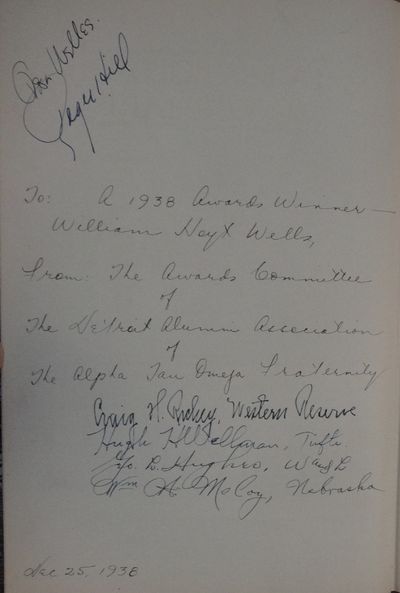 To: A 1938 Awards Winner—
William Hoyt Wells,
From: The Awards Committee
of
The Detroit Alumni Association
of
The Alpha Tau Omega Fraternity
Craig H. Richey, Western Reserve
Hugh Tufts.
Geo. L. Hughes, W and L
Wm A. McCoy, Nebraska
Dec 25, 1938